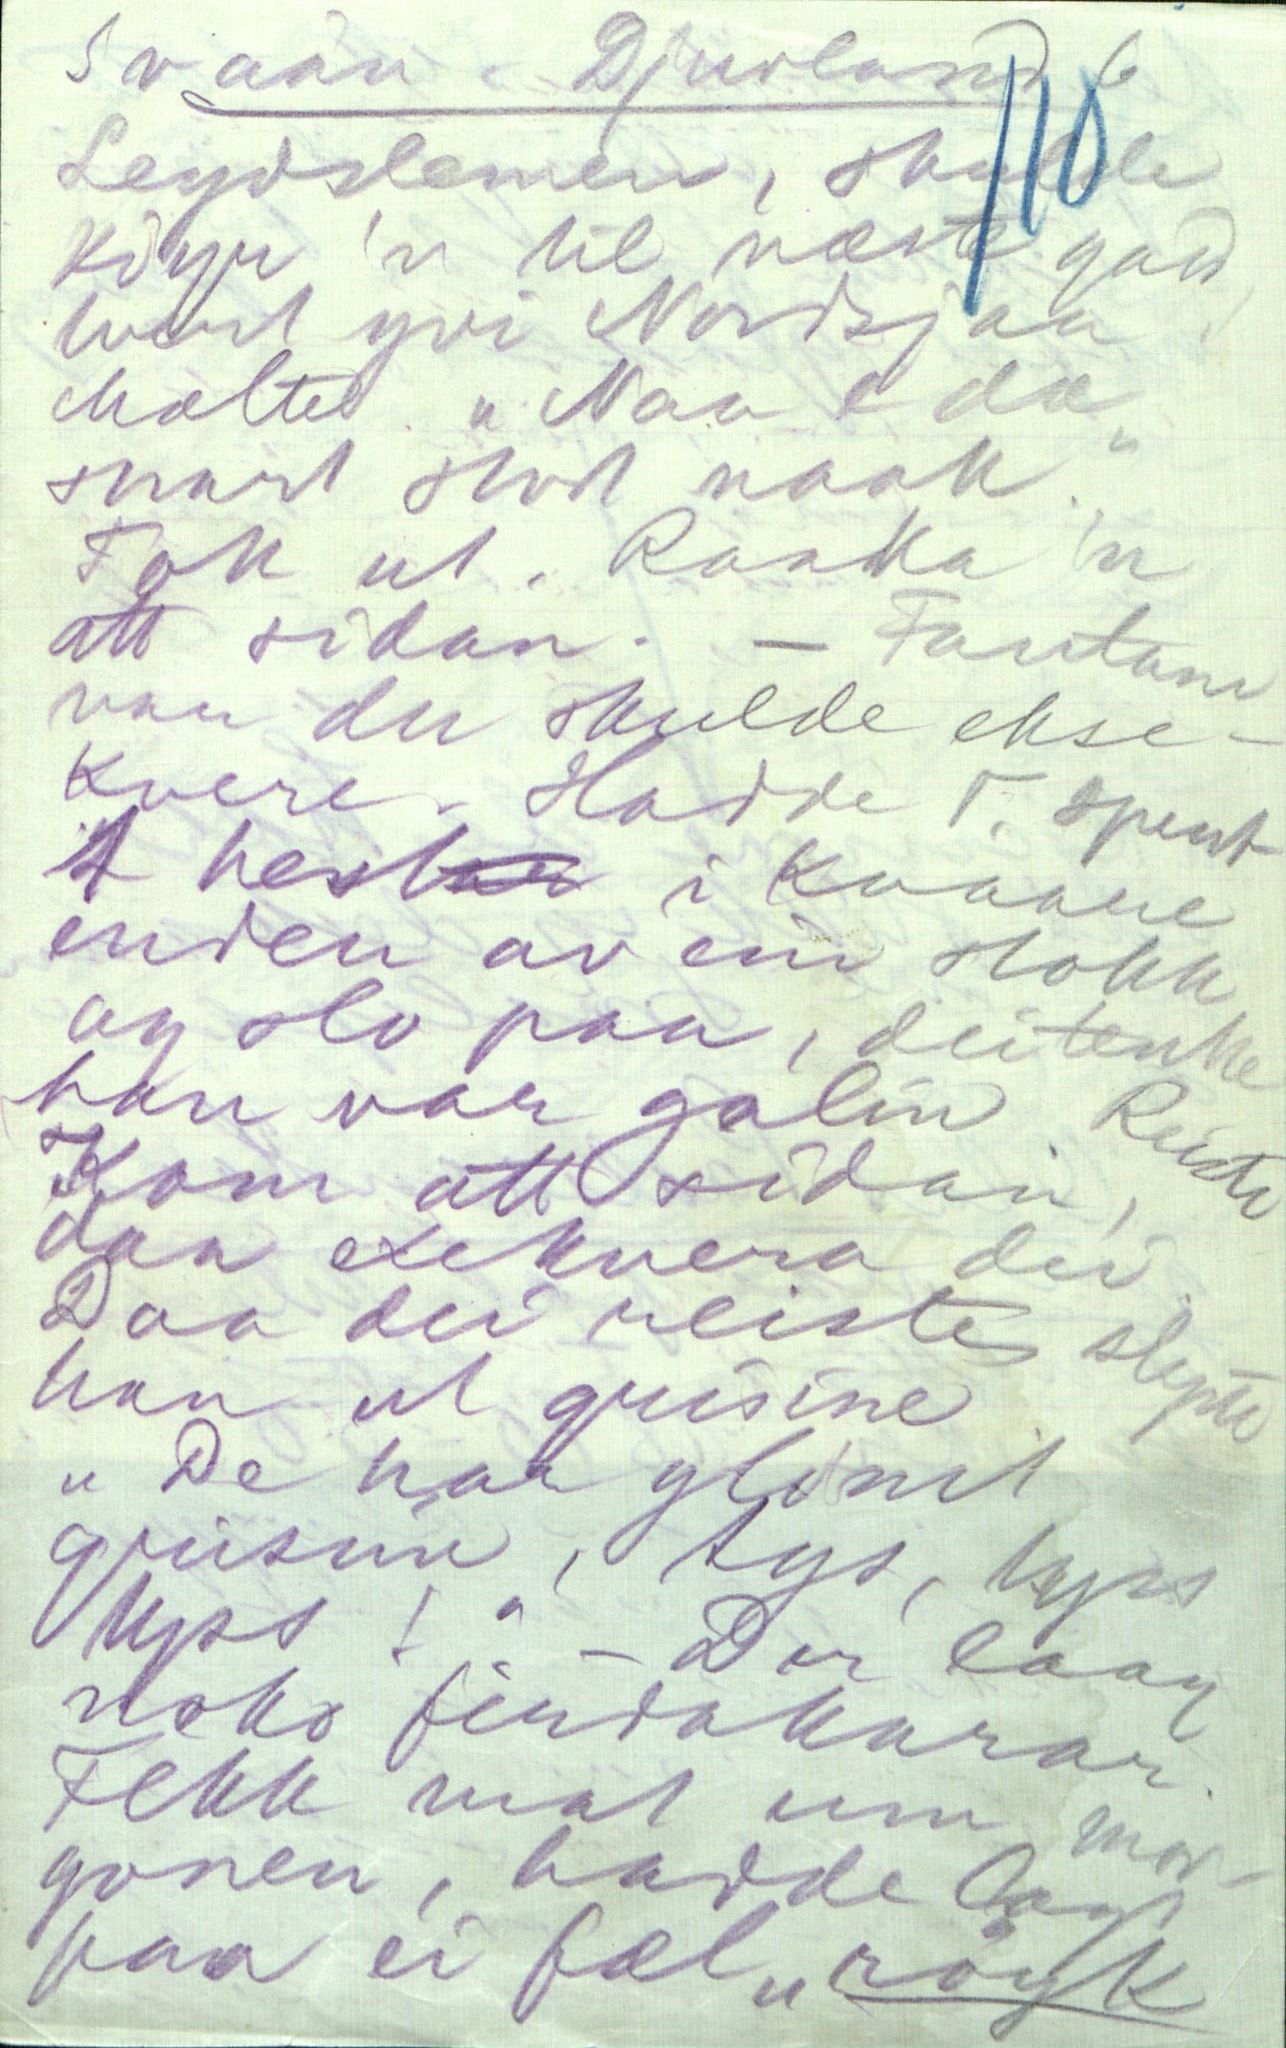 Svaan. Djuvland 6
110
Legdslemen, skulde
köyr 'n til næste gard,
burt yvi Nordsjaa.
Mælte "Naa e dæ
snart stod naak".
Fok ut. Raaka 'n
att sidan. — Fanten
van du skulde ekse-
kvere. Hadde T. spent
1 hest i kvaare
enden av ein stokk
og slo paa, dei tenkte
han var galin. Reiste
Kom att sidan,
daa exekvera dei.
Daa dei reiste, slepte
han ut grisine
"De haa glömt
grisine, tys, tyss
tyss!" — Der laag
noko ferdakarar.
Fekk mat um mor-
gonen, hadde lagt
paa ei fæl "röyk